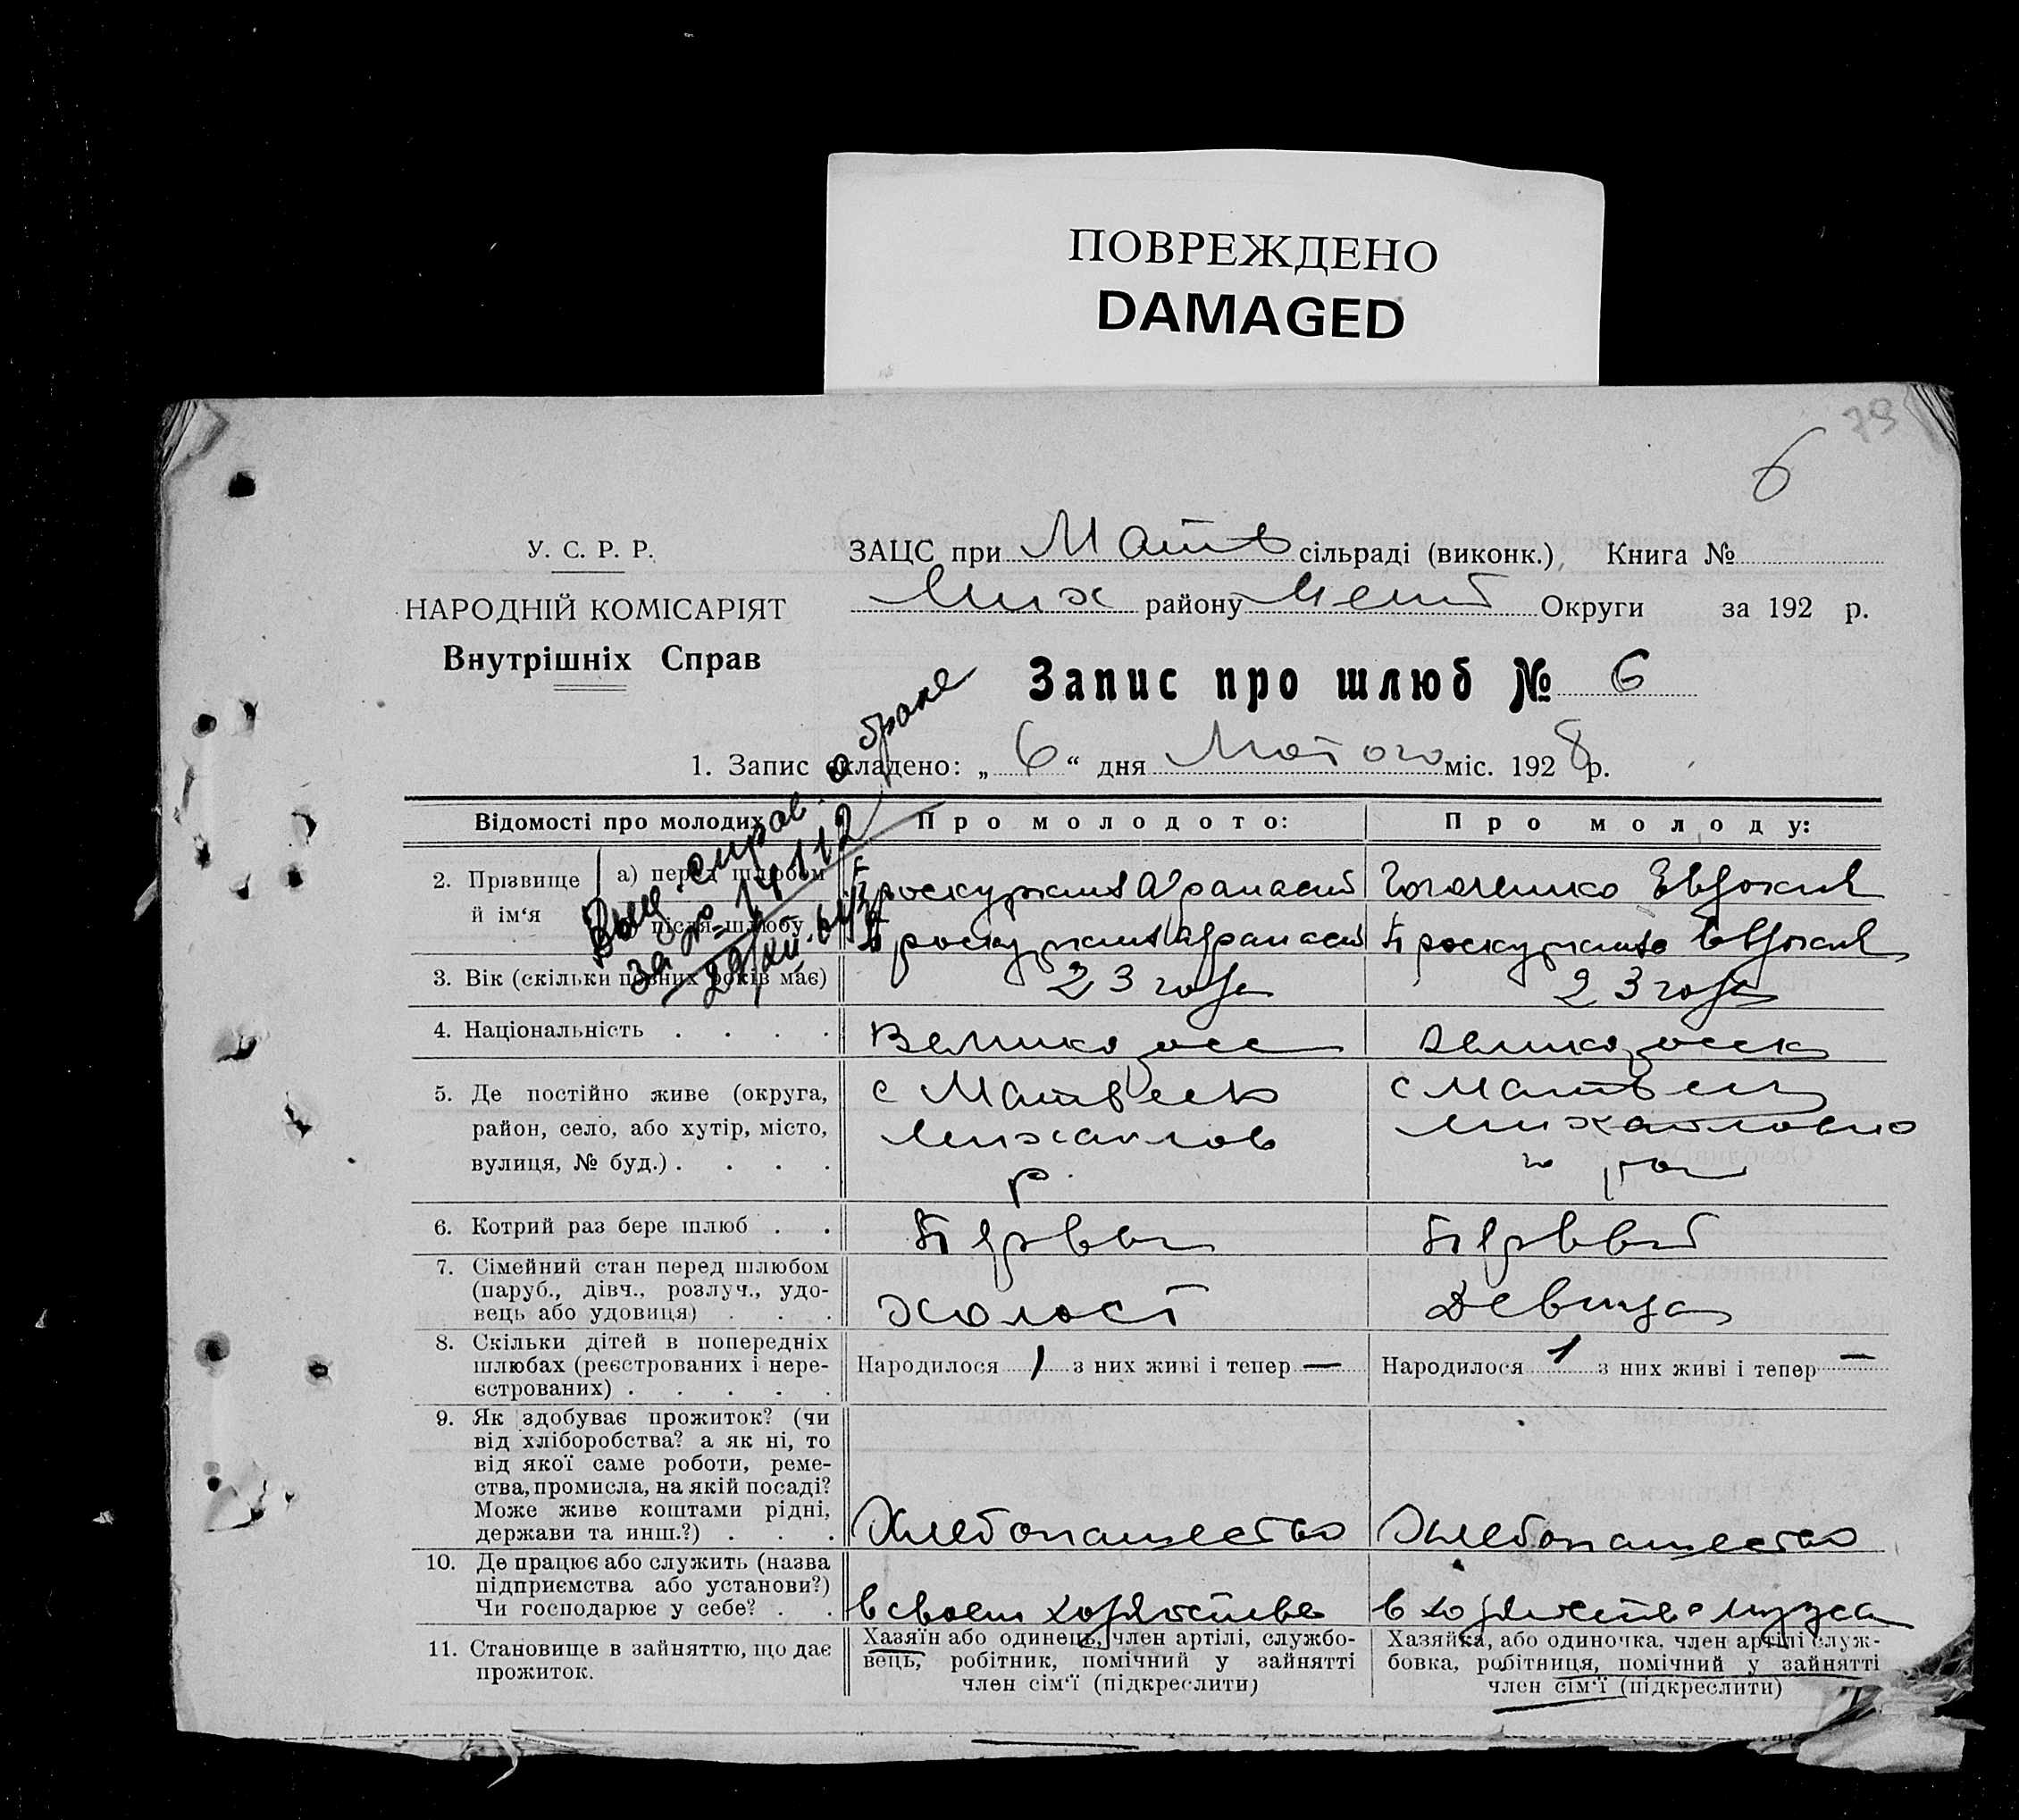 ПОВРЕЖДЕНО
DAMAGED
79
6
У. С. Р. Р.
НАРОДНІЙ КОМІСАРІЯТ
Внутрішніх Справ
ЗАЦС при Матв сільраді (виконк.), Книга №
Мих району Мелит Округи за 192 р.
Запис про шлюб № 6
1. Запис складено: „ 6 “ дня Лютого міс. 1928 р.
Выд. справ. о браке
за № 14112
29/XII
Відомості про молодих
Про молодого:
Про молоду:
2. Прізвище й ім‘я
а) перед шлюбом
Проскурина Афанасий
Евдокия
після шлюбу
Проскурина Афанасий
Проскурина Евдокия
3. Вік (скільки повних років має)
23 года
23 года
4. Національність . . . .
Великоросс
Великоросск
5. Де постійно живе (округа,
район, село, або хутір, місто,
вулиця, № буд.) . . . .
с Матвеевк
Михайлов
р.
с Матвеев
Михайловско
го рай
6. Котрий раз бере шлюб . .
Первый
Первый
7. Сімейний стан перед шлюбом
(паруб., дівч., розлуч., удо-
вець або удовиця) . . .
Холост
Девица
8. Скільки дітей в попередніх
шлюбах (реєстрованих і нере-
єстрованих) . . . . .
Народилося 1 з них живі і тепер —
Народилося 1 з них живі і тепер —
9. Як здобуває прожиток? (чи
від хліборобства? а як ні, то
від якої саме роботи, реме-
ства, промисла, на якій посаді?
Може живе коштами рідні,
держави та инш.?) . . .
Хлебопашество
Хлебопашество
10. Де працює або служить (назва
підприємства або установи?)
Чи господарює у себе? . .
в своем хозяйстве
в хозяйстве мужа
11. Становище в зайняттю, що дає
прожиток.
Хазяїн або одинець, член артілі, службо-
вець, робітник, помічний у зайнятті
член сім‘ї (підкреслити)
Хазяйка, або одиночка, член артілі служ-
бовка, робітниця, помічний у зайнятті
член сім‘ї (підкреслити)